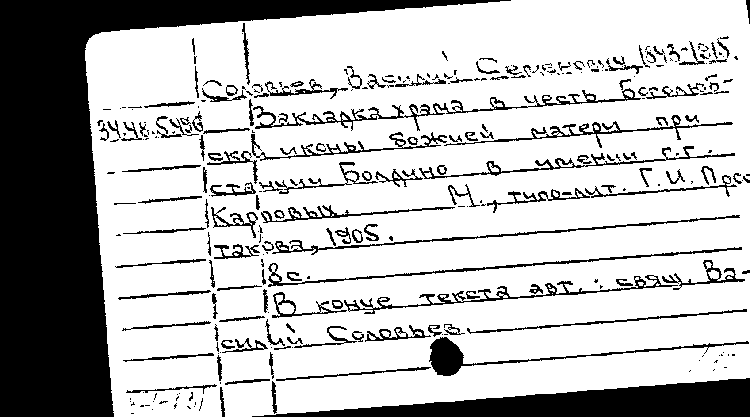 Соловьев, Василий Семенович, 1843-1915.
34.48.5496 Закладка храма в честь Боголюб-
ской иконы божией матери при
станции Болдино в имении г.г.
Карповых. М., типо-лит. Г.И. Прос
такова, 1905.
8с.
В конце текста авт.: свящ. Ва-
силий Соловьев.